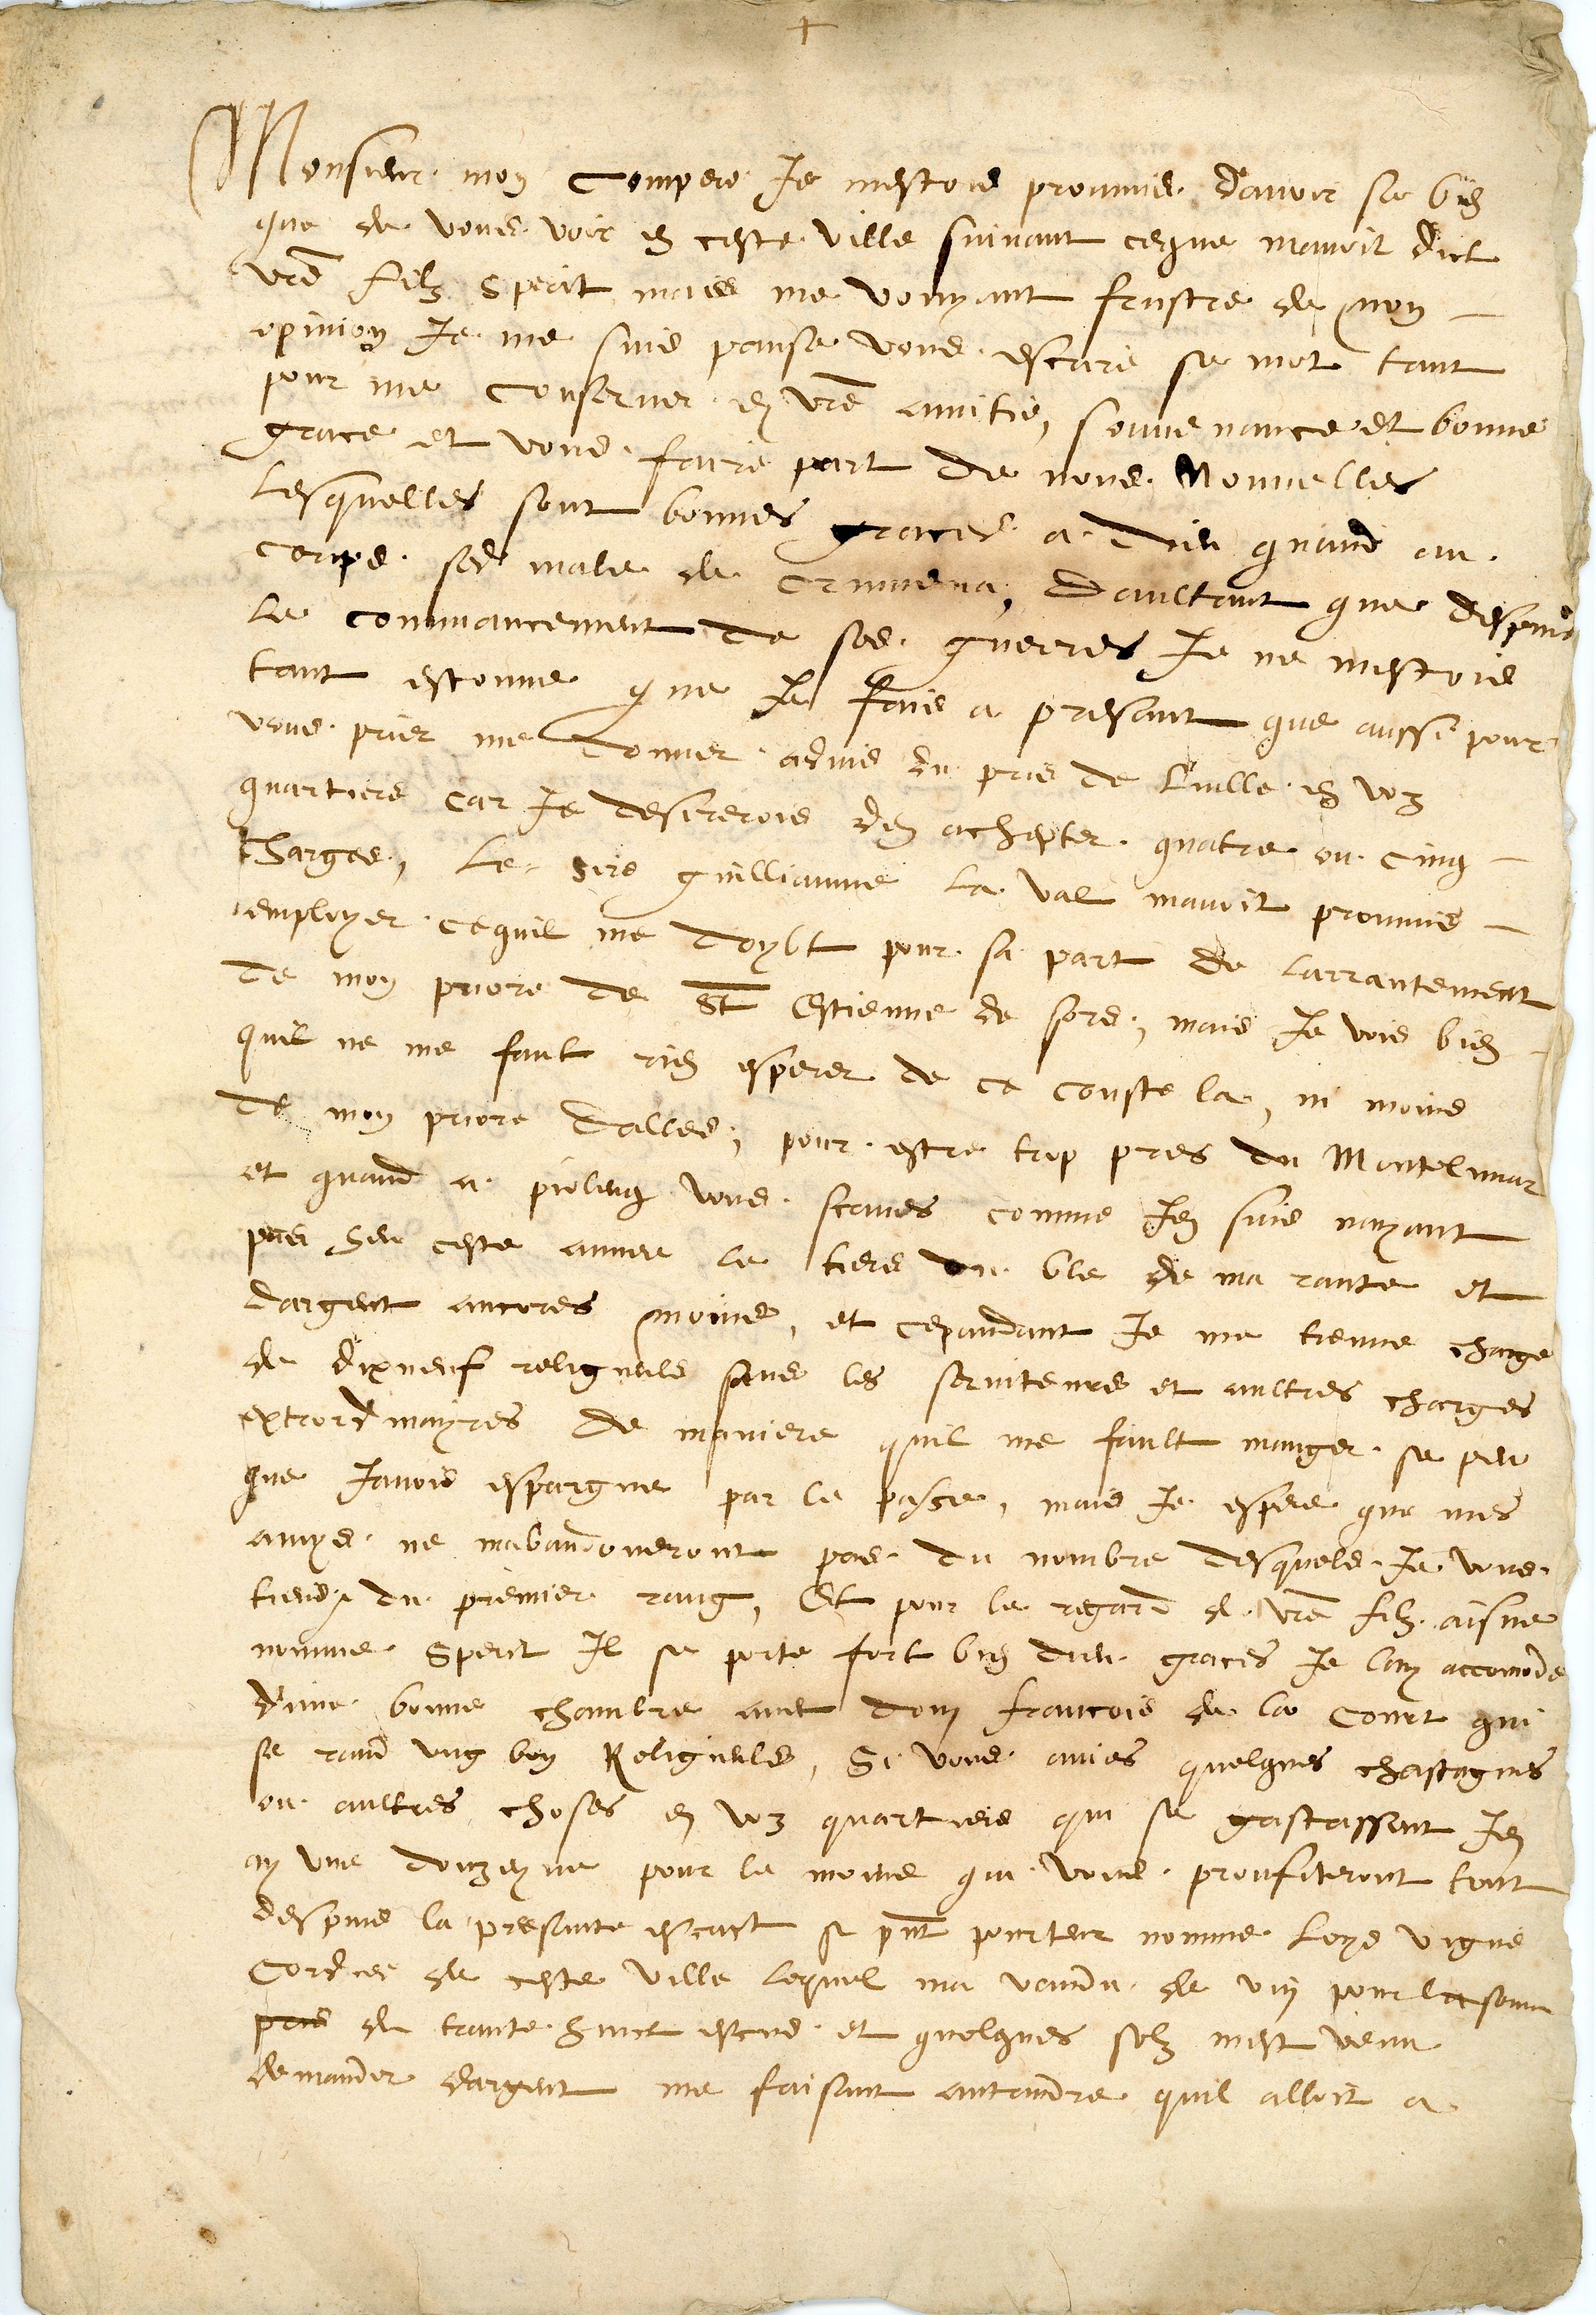 +
Monsieur mon compere Je mestois proumis davoir se bien
que de vous voir en ceste ville suivant ceque mavoit dict
vre filz Sperit mais me vouyant frustre de mon
opinion Je me suis panse vous escrire se mot tant
pour me conserver en vre amitie, souvenance et bonne
grace et vous faire part de nous Nouvelles
lesquelles sont bonnes graces a dieu quand au
corps sed male de crumena, daultant que despuis
le commancement de ses guerres Je ne mestois
tant estonne que Je fais a presant que aussi pour
vous prier me donner advis du pris de Luille en voz
quartiers car Je desirerois den achepter quatre ou cinq
charges, Le sire guilliaume la val mavoit proumis
employer cequil me doybt pour sa part de larrantement
de mon priore de St Estienne de sors, mais Je vois bien
quil ne me fault rien esperer de ce couste la, ni moins
de mon priore dalles, pour estre trop pres du Montelimar
et quand a pioleng vous scaves comme Jen suis nayant
pas heu ceste annee le tiers du ble de ma rante et
dargent ancores moins, et cepandant Je me treuve charge
de dixneuf religieuls sans les serviteurs et aultres charges
extrordinayres de maniere quil me fault manger se peu
que Javois espargne par le passe, mais Je espere que mes
amys ne mabandoneront pas du nombre desquels Je vous
tiens du premier rang, Et pour le regard de vre filz aisne
nomme Sperit Il se porte fort bien dieu graces Je lay accomode
dune bonne chambre avec dom francois de la Court qui
se rand ung bon Religieuls, Si vous avies quelques chastagnes
ou aultres choses en voz quartiers qui se gastassent Jen
ay une douzeyne pour le moins qui vous proufiteront tout
despuis la presante escript se pnt pourteur nomme Loys vigne
Cordier de ceste ville lequel ma vandu de vin pour la somme
pris de trante huict escus et quelques solz mest venu
demander dargent me faisant antandre quil alloit a